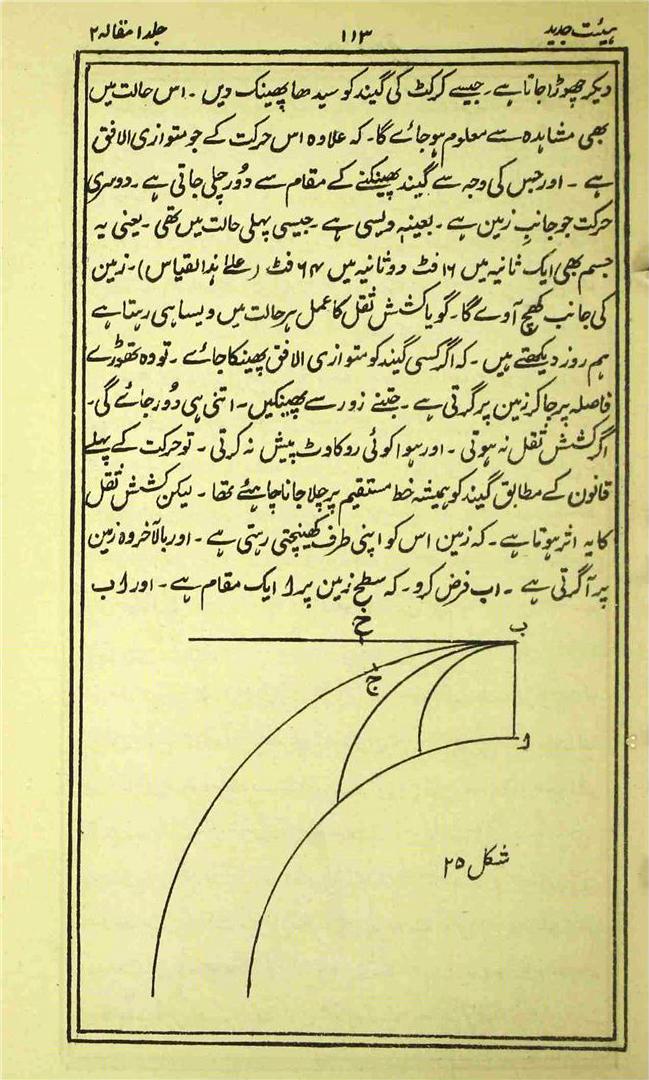 ہیئت جدید
۱۱۳
جلد ۱ مقالہ ۲
دیکر چھوڑا جاتا ہے۔ جیسے کرکٹ کی گیند کو سیدھا پھینک دیں۔ اس حالت میں
بھی مشاہدہ سے معلوم ہو جائے گا۔ کہ علاوہ اس حرکت کے جو متوازی الافق
ہے۔ اور جس کی وجہ سے گیند پھینکنے کے مقام سے دُور چلی جاتی ہے۔ دوسری
حرکت جو جانبِ زمین ہے۔ بعینہٖ ویسی ہے۔ جیسی پہلی حالت میں تھی۔ یعنی یہ
جسم بھی ایک ثانیہ میں ۱۶ فٹ دو ثانیہ میں ۶۴ فٹ (علےٰ ہذالقیاس)۔ زمین
کی جانب کھچ آوے گا۔ گویا کشش ثقل کا عمل ہر حالت میں ویسا ہی رہتا ہے
ہم روز دیکھتے ہیں۔ کہ اگر کسی گیند کو متوازی الافق پھینکا جائے۔ تو وہ تھوڑے
فاصلہ پر جا کر زمین پر گرتی ہے۔ جتنے زور سے پھینکیں۔ اتنی ہی دُور جائے گی۔
اگر کشش ثقل نہ ہوتی۔ اور ہوا کوئی روکاوٹ پیش نہ کرتی۔ تو حرکت کے پہلے
قانون کے مطابق گیند کو ہمیشہ خط مستقیم پر چلا جانا چاہئے تھا۔ لیکن کشش ثقل
کا یہ اثر ہوتا ہے۔ کہ زمین اس کو اپنی طرف کھینچتی رہتی ہے۔ اور بالآخر وہ زمین
پر آ گرتی ہے۔ اب فرض کرو۔ کہ سطح زمین پر ا ایک مقام ہے۔ اور ا ب
ب
خ
ج
ا
شکل ۲۵